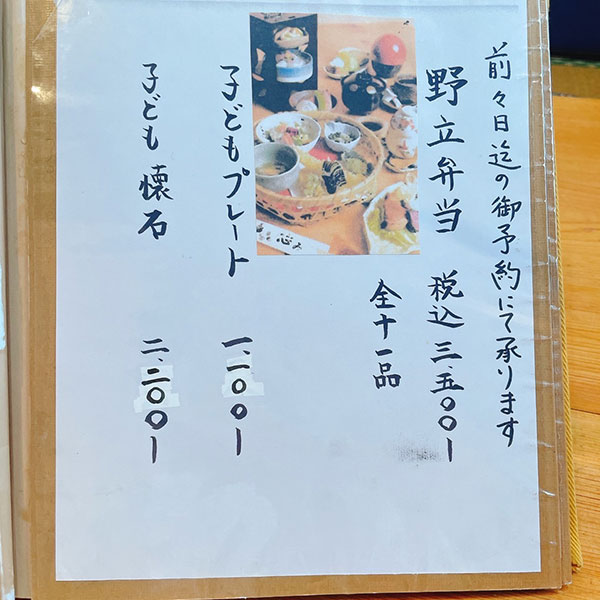 前々日迄の御予約にて承ります
野立弁当 税込三、五〇〇ー
全十一品
子どもプレート 一、一〇〇ー
子ども懐石 二、二〇〇ー